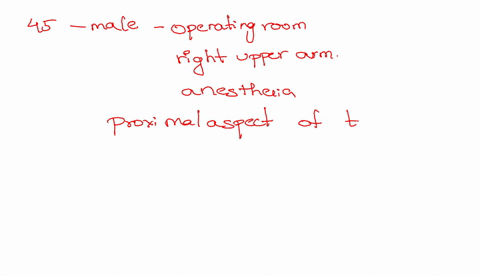 45 - male - operating room
right upper arm.
anesthesia
proximal aspect of t